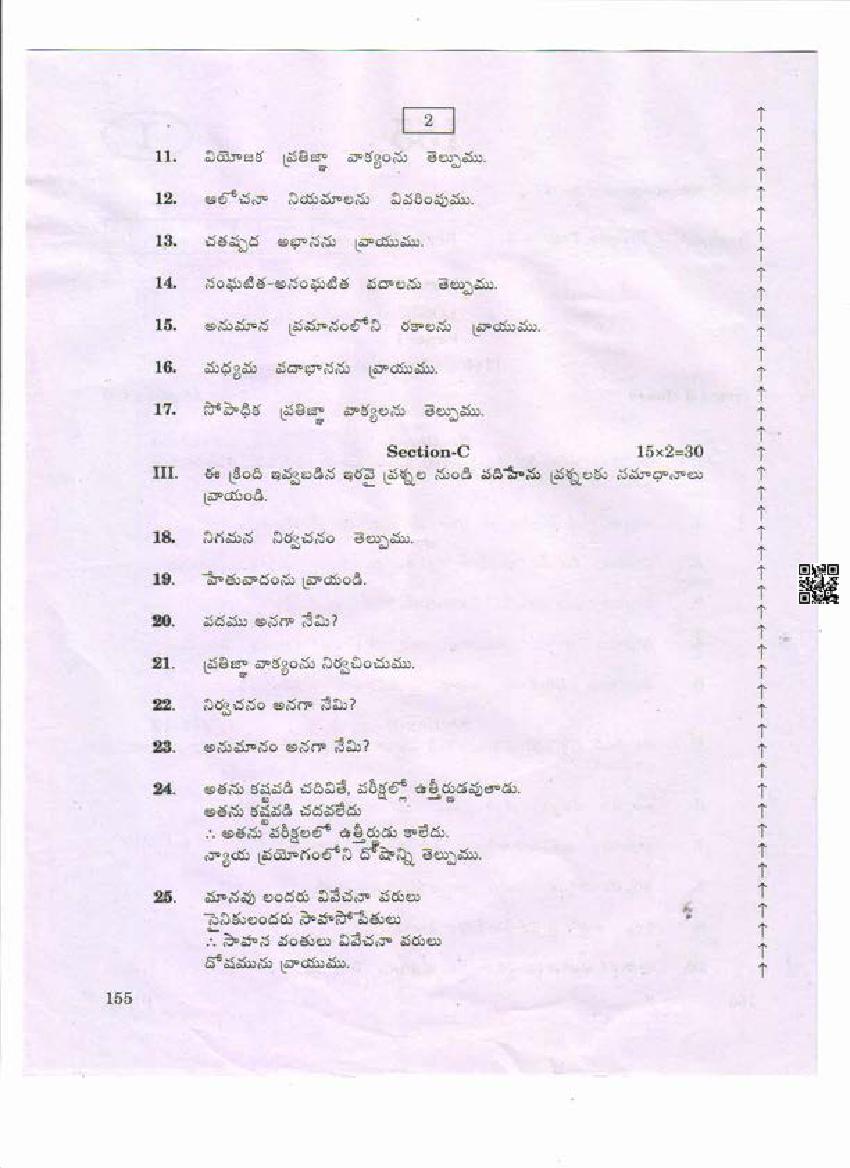 2
11. వియోజక ప్రతిజ్ఞా వాక్యంను తెల్పుము.
12. ఆలోచనా నియమాలను వివరింపుము.
13. చతష్పద ఆభాసను వ్రాయుము.
14. సంఘటిత-అసంఘటిత పదాలను తెల్పుము.
15. అనుమాన ప్రమానంలోని రకాలను వ్రాయుము.
16. మధ్యమ పదాభాసను వ్రాయుము.
17. సోపాధిక ప్రతిజ్ఞా వాక్యలను తెల్పుము.
Section-C 15×2=30
III. ఈ క్రింది ఇవ్వబడిన ఇరవై ప్రశ్నల నుండి పదిహేను ప్రశ్నలకు సమాధానాలు
వ్రాయండి.
18. నిగమన నిర్వచనం తెల్పుము.
19. హేతువాదంను వ్రాయండి.
20. పదము అనగా నేమి?
21. ప్రతిజ్ఞా వాక్యంను నిర్వచించుము.
22. నిర్వచనం అనగా నేమి?
23. అనుమానం అనగా నేమి?
24. అతను కష్టపడి చదివితే, పరీక్షల్లో ఉత్తీర్ణుడవుతాడు.
అతను కష్టపడి చదవలేదు
∴ అతను పరీక్షలలో ఉత్తీర్ణుడు కాలేదు.
న్యాయ ప్రయోగంలోని దోషాన్ని తెల్పుము.
25. మానవు లందరు వివేచనా పరులు
సైనికులందరు సాహసోపేతులు
∴ సాహస వంతులు వివేచనా పరులు
దోషమును వ్రాయుము.
155